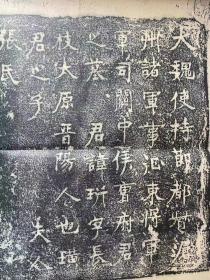 大魏使持節都督滄
州諸軍事征東將軍
軍司關中侯曹府君
之墓 君諱玡字長
枝太原晉陽人也璜
君之子 夫人
張氏